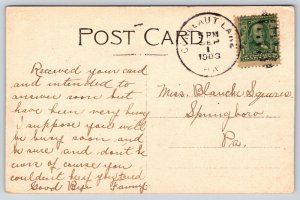 POST CARD
CONNEAUT LAKE
5 PM
SEP
1
1908
PA
Received your card
and intended to
answered soon but
have been very busy
i suppose you will
be busy soon and
be sure and dont be
of course you
couldn't help
Good Bye Fanny
Miss. Blanche Squires
Springboro
Pa.